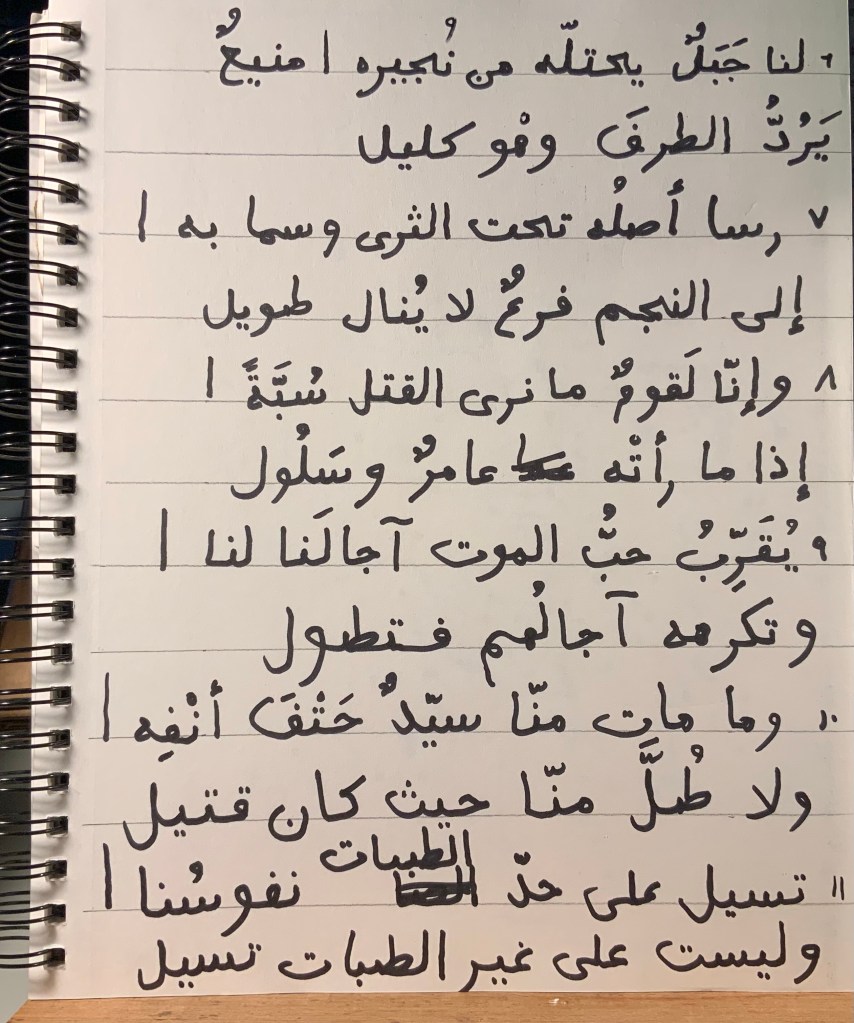 ٦ لنا جَبَلٌ يحتلّه من نُجيره | منيعٌ
يَرُدُّ الطرفَ وهْو كليل
٧ رسا أصلُه تحت الثرى وسما به |
إلى النجم فرعٌ لا يُنال طويل
٨ وإنّا لَقومٌ ما نرى القتل سُبَّةً |
إذا ما رأتْه عامرٌ وسَلُول
٩ يُقَرِّبُ حبُّ الموت آجالَنا لنا |
وتكرهه آجالُهم فتطول
١٠ وما مات منّا سيّدٌ حَتْفَ أنْفِه |
ولا طُلَّ منّا حيث كان قتيل
١١ تسيل على حدّ الطبيات نفوسُنا |
وليست على غير الطبات تسيل